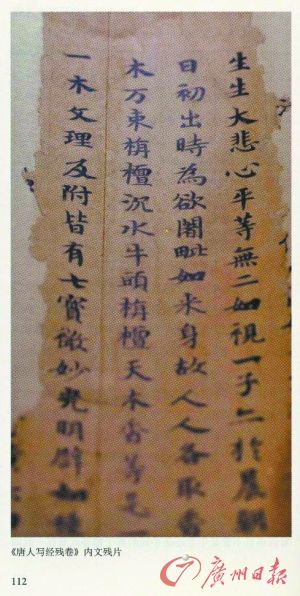 生生大悲心平等無二如視一子亦於晨朝
日初出時為欲闍毗如来身故人人各取香
木万束栴檀沉水牛頭栴檀天木香等是一
一木文理及附皆有七寳微妙光明辟如種
《唐人写经残卷》内文残片
112
廣州日报